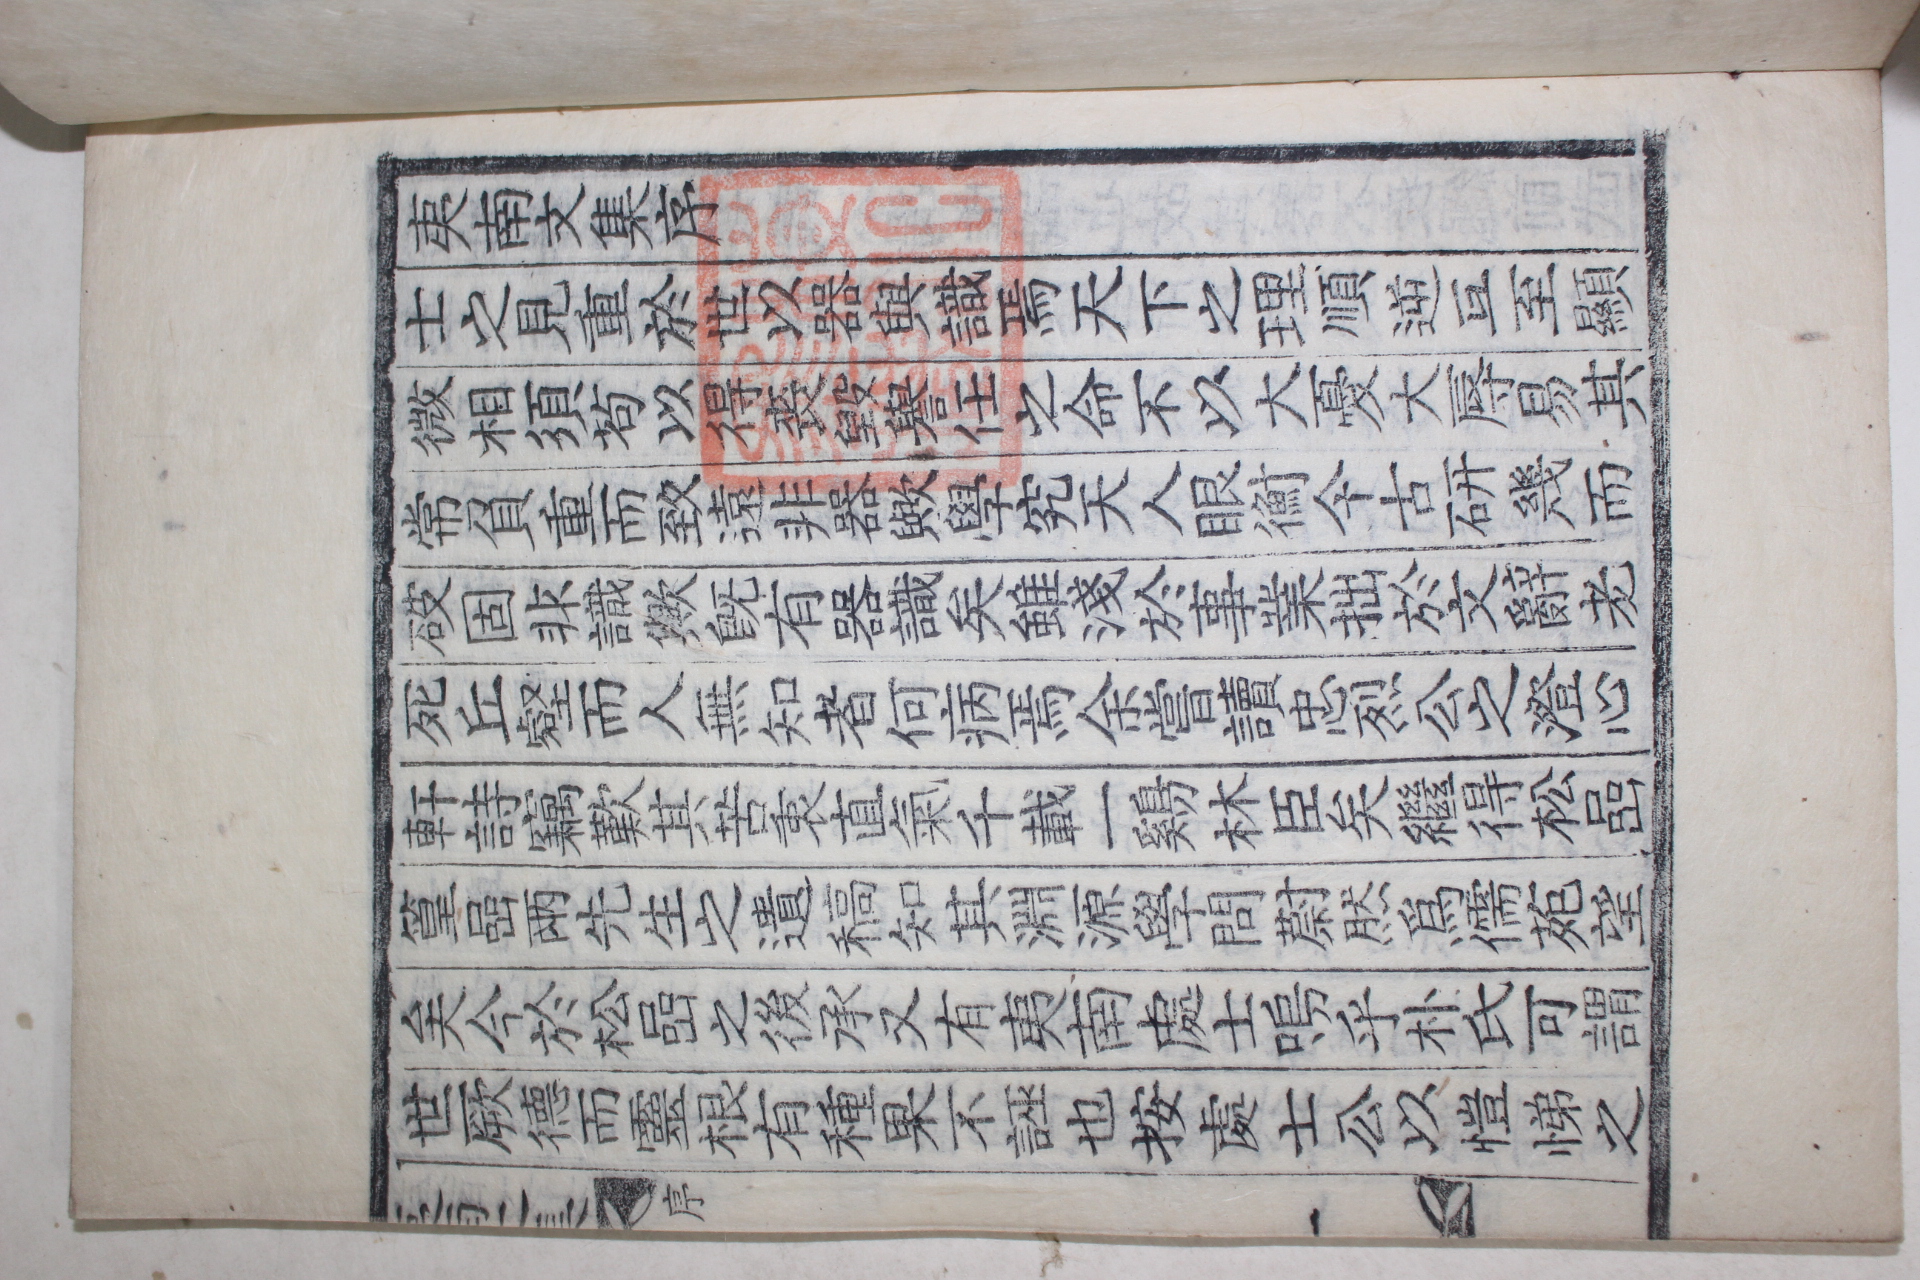 東南文集序
士之見重於世以器與識焉天下之理順逆互至顯
微相須苟以得喪毀譽任之命不以大憂大辱易其
常負重而致遠非器歟學究天人眼衡今古研幾而
破固非識歟旣有器識矣雖淺於事業拙於文辭老
死丘壑而人無知者何病焉余嘗讀忠烈公之澄心
軒詩竊歎其苦衷直氣千載一鷄林臣矣繼得松嵒
篁嵒兩先生之遺稿知其淵源學問蔚然爲儒苑望
矣今於松嵒之後承又有東南處士嗚乎朴氏可謂
世厥德而靈根有種果不誣也按處士公以愷悌之
東南文集 序 一